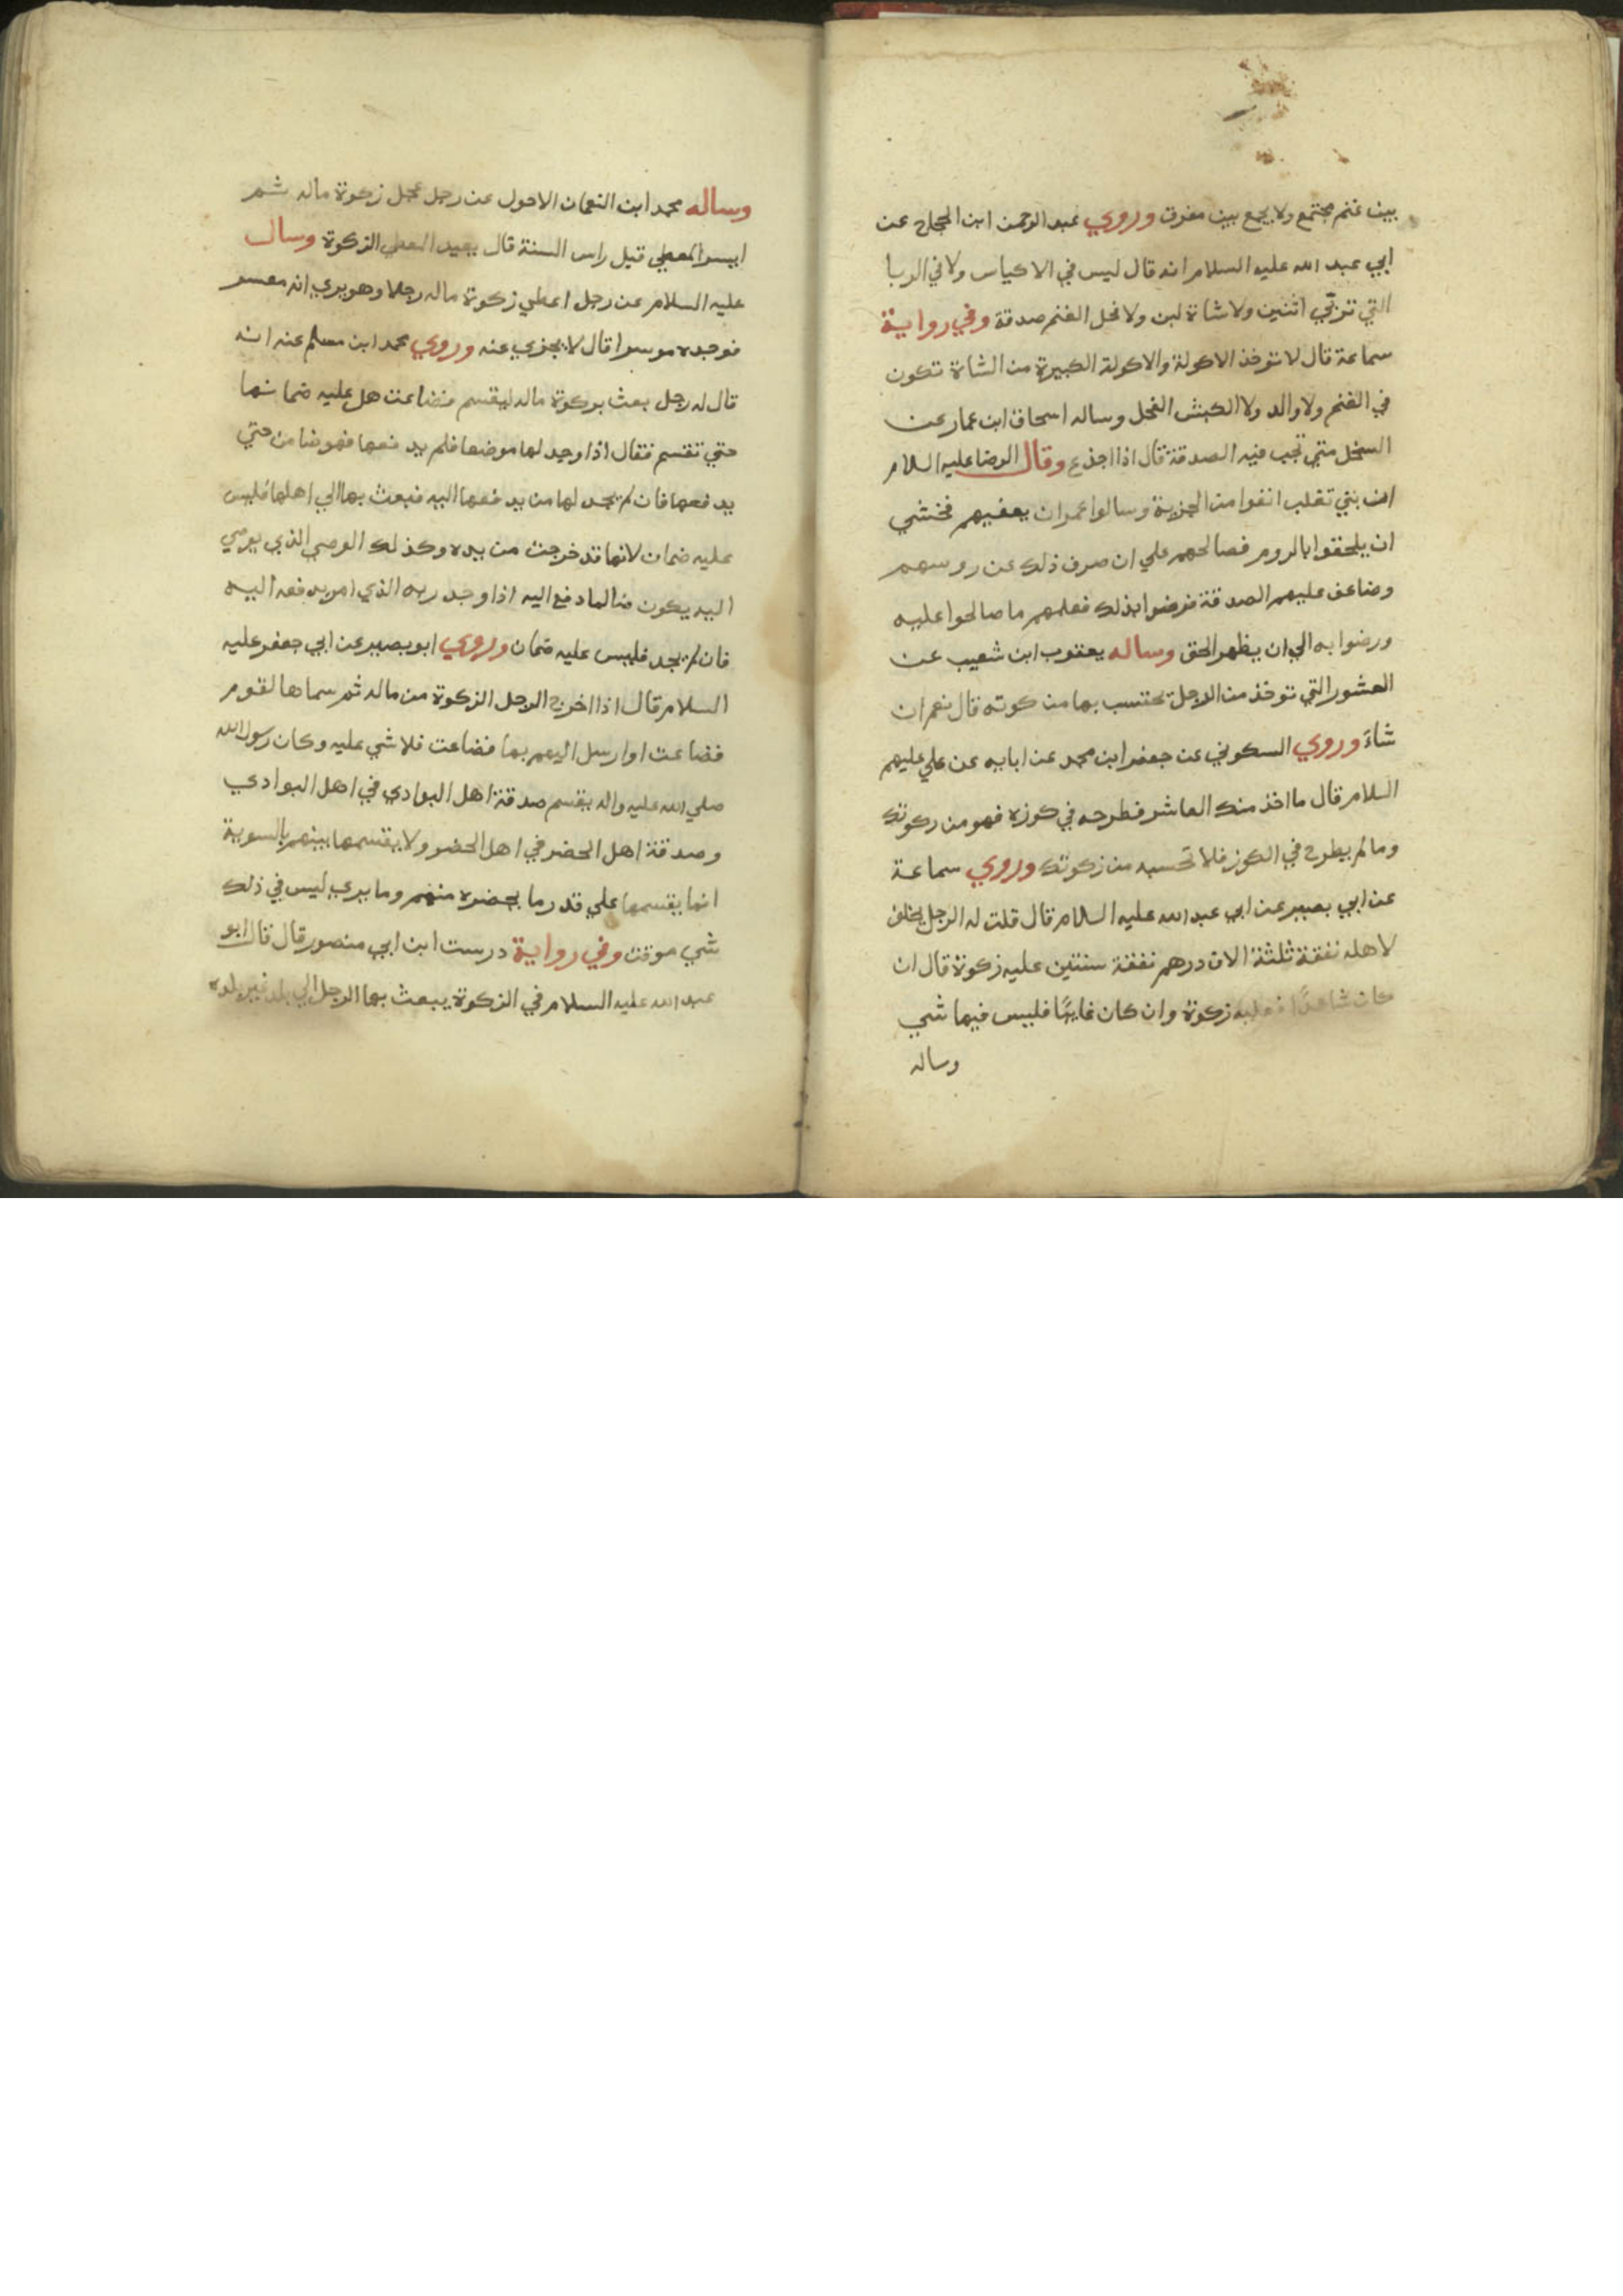 بين غنم مجتمع ولا يجمع بين مفرق وروي عبد الرحمن ابن الحجاج عن
ابي عبد الله عليه السلام انه قال ليس في الاكياس ولا في الربا
التي تربي اثنين ولا شاة لبن ولا فحل الغنم صدقة وفي رواية
سماعة قال لا توخذ الاكولة والاكولة الكبيرة من الشاة تكون
في الغنم ولا والد ولا الكبش الفحل وساله اسحاق ابن عمار عن
السخل متي تجب فيه الصدقة قال اذا اجذع وقال الرضا عليه السلام
ان بني تغلب انفوا من الجزية وسالوا عمر ان يعفيهم فخشي
ان يلحقوا بالروم فصالحهم علي ان صرف ذلك عن روسهم
وضاعف عليهم الصدقة فرضوا بذلك فعلهم ما صالحوا عليه
ورضوا به الي ان يظهر الحق وساله يعقوب ابن شعيب عن
العشور التي توخذ من الرجل تحتسب بها من كوته قال نعم ان
شاءَ وروي السكوني عن جعفر ابن محمد عن ابايه عن علي عليهم
السلام قال ما اخذ منك العاشر فطرحه في كوزه فهو من ركوتك
وما لم يطرح في الكوز فلا تحسبه من زكوتك وروي سماعة
عن ابي بصير عن ابي عبد الله عليه السلام قال قلت له الرجل يخلف
لاهله نفقة ثلثة الاف درهم نفقة سنتين عليه زكوة قال ان
كان شاهدًا فعليه زكوة وان كان غايبًا فليس فيها شي
وساله
وساله محمد ابن النعمان الاحول عن رجل عجل زكوة ماله ثم
ايسر المعطي قبل راس السنة قال يعيد المعطي الزكوة وسال
عليه السلام عن رجل اعطي زكوة ماله رجلا وهو يري انه معسر
فوجده موسرا قال لا يجزي عنه وروي محمد ابن مسلم عنه انه
قال له رجل بعث بركوة ماله ليقسم فضاعت هل عليه ضمانها
حتي تقسم فقال اذا وجد لها موضعا فلم يدفعها فهو ضامن حتي
يدفعها فان لم يجد لها من يدفعها اليه فبعث بها الي اهلها فليس
عليه ضمان لانها قد خرجت من يده وكذلك الوصي الذي يوصي
اليه يكون ضالما دفع اليه اذا وجد ربه الذي امر بدفعه اليه
فان لم يجد فليس عليه ضمان وروي ابو بصير عن ابي جعفر عليه
السلام قال اذا اخرج الرجل الزكوة من ماله ثم سماها لقوم
فضاعت او ارسل اليهم بها فضاعت فلا شي عليه وكان رسول الله
صلي الله عليه واله يقسم صدقة اهل البوادي في اهل البوادي
وصدقة اهل الحضر في اهل الحضر ولا يقسمها بينهم بالسوية
انما يقسمها علي قدر ما يحضره منهم وما يري ليس في ذلك
شي موقت وفي رواية درست ابن ابي منصور قال قال ابو
عبد الله عليه السلام في الزكوة يبعث بها الرجل الي بلد غير بلده